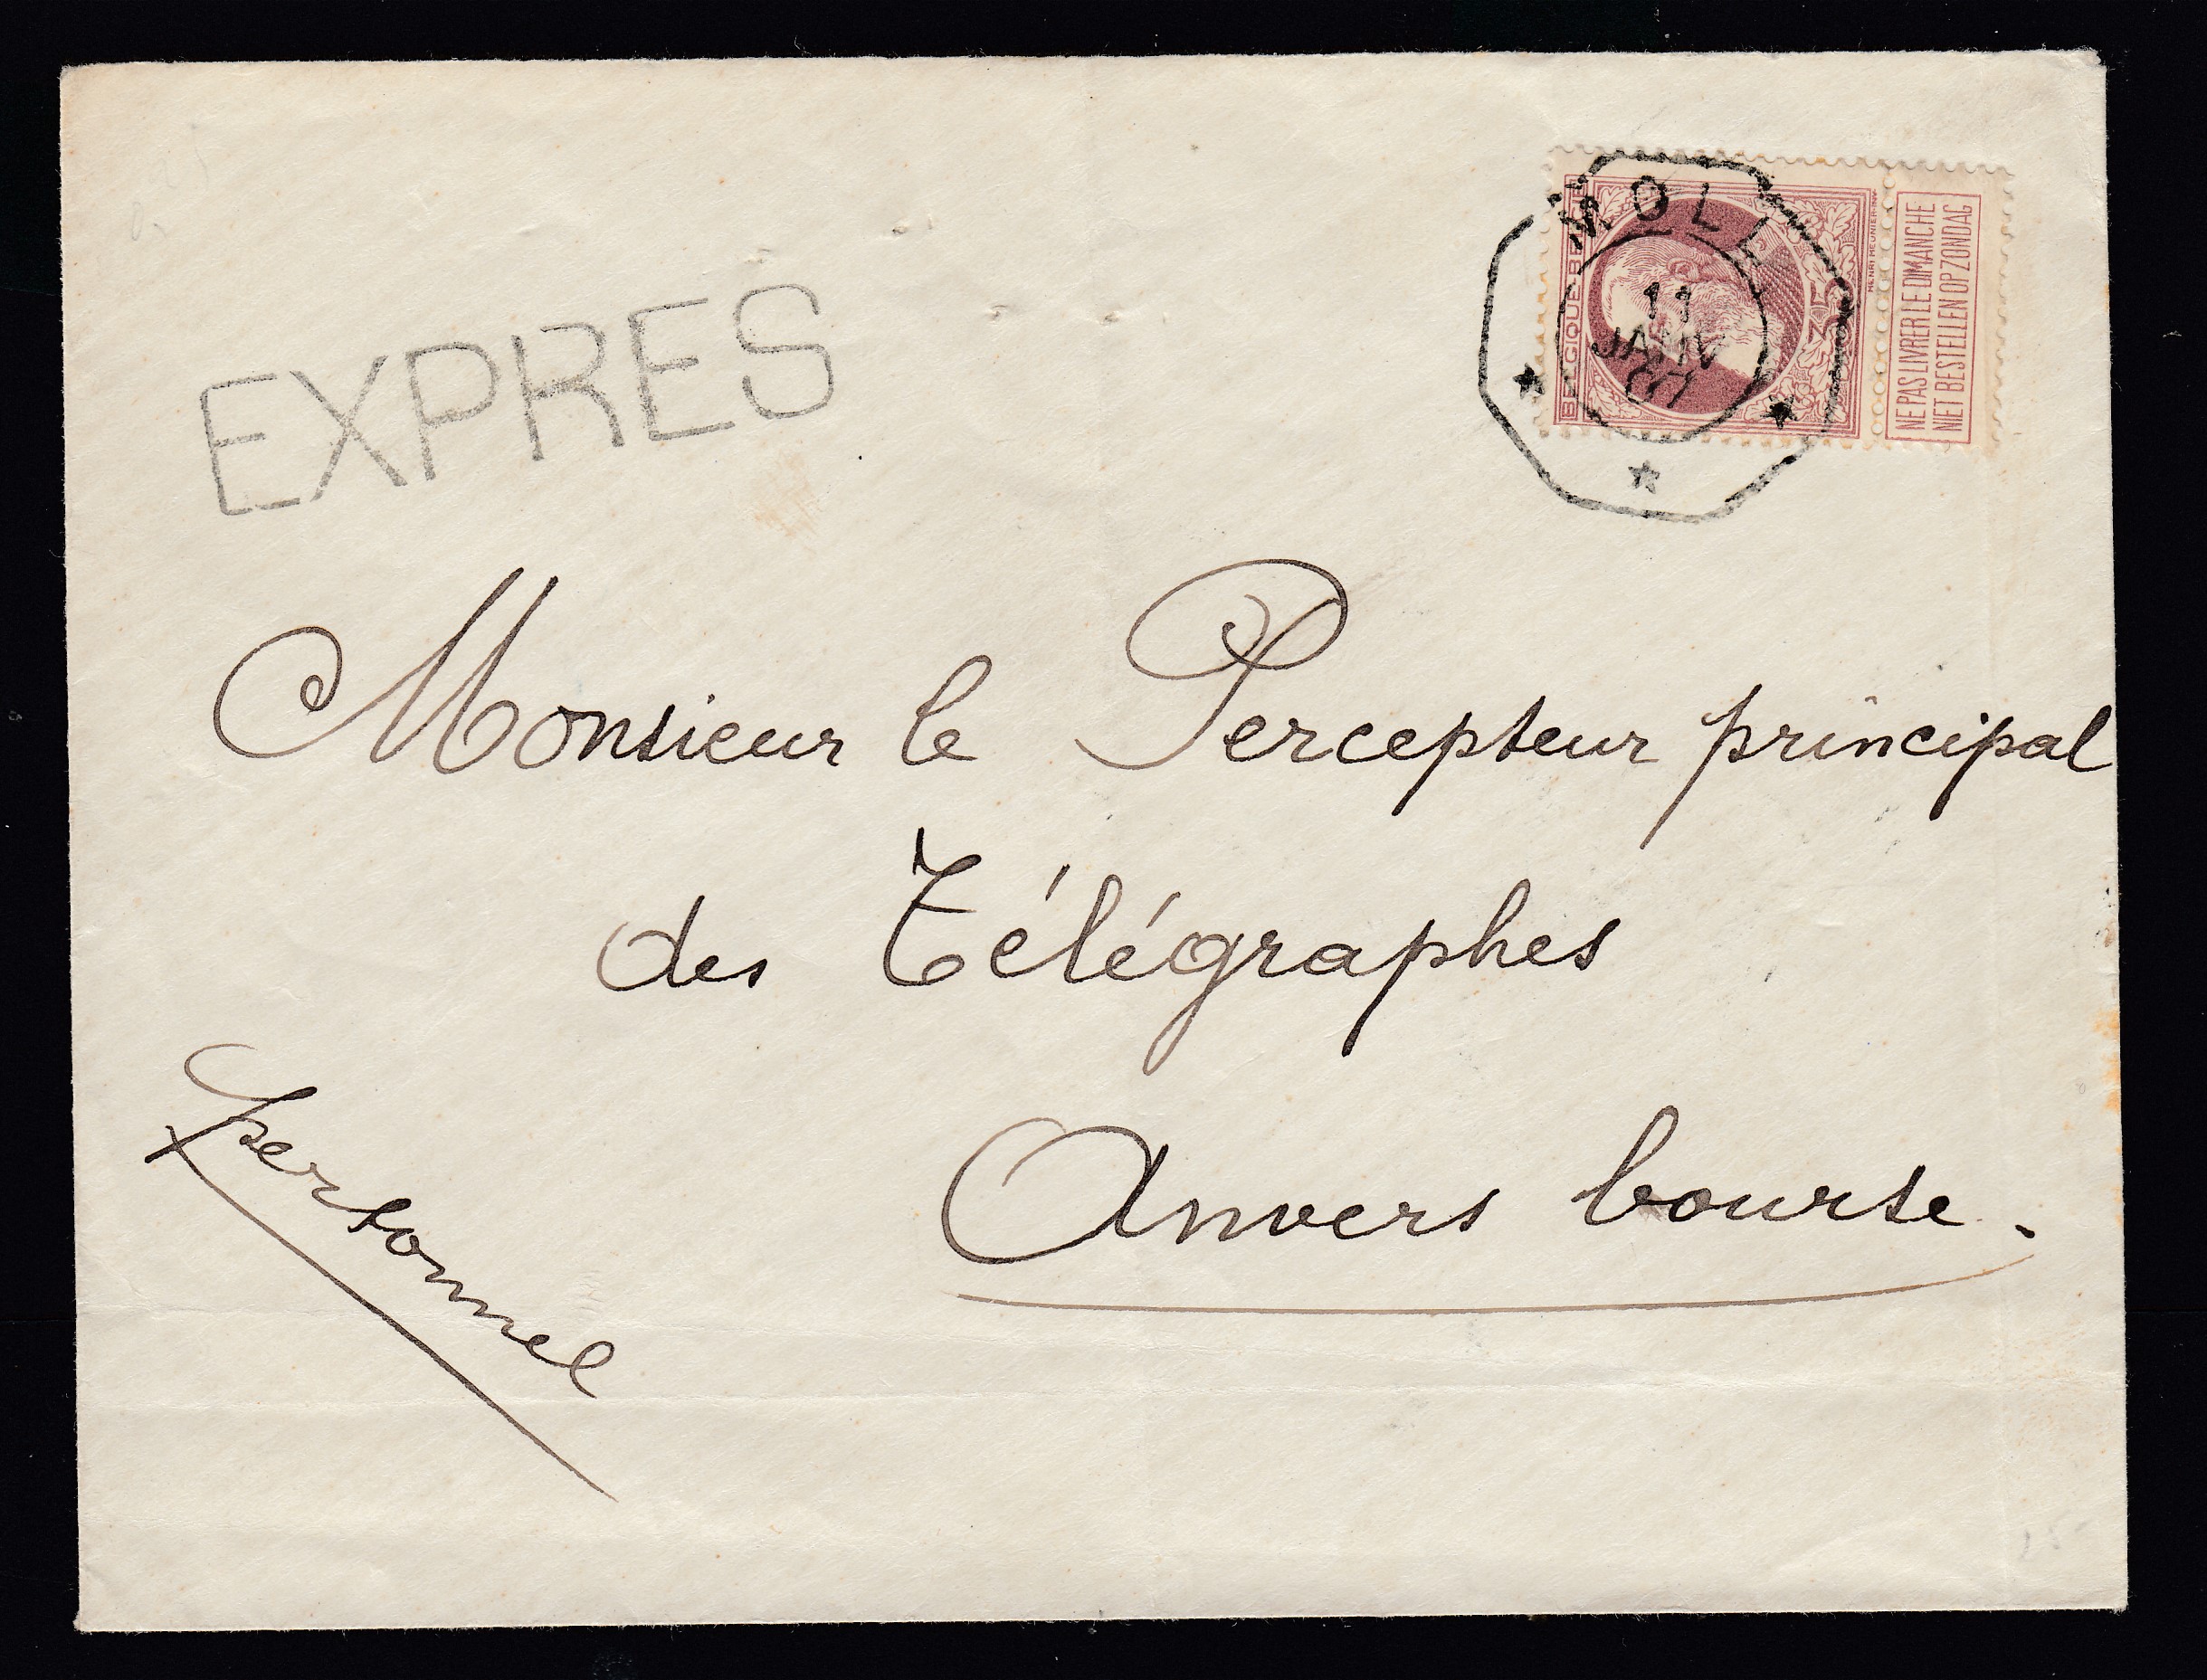 EXPRES
MOLL
11
JANV
07
BELGIQUE BELGIE
HENRI MEUNIER INV
NE PAS LIVRER LE DIMANCHE
NIET BESTELLEN OP ZONDAG
Monsieur le Percepteur principal
des Télégraphes
Anvers bourse.
personnel